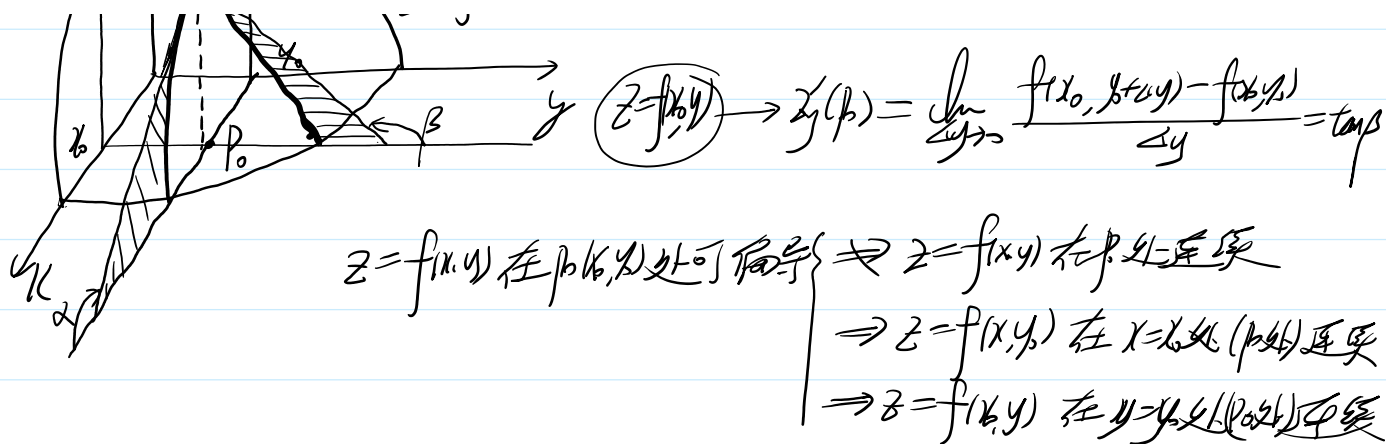 y₀
x₀
P₀
β
y
x
α
z=f(x₀,y) → z'y(p₀) = lim Δy→0 f(x₀, y₀+Δy)-f(x₀,y₀) / Δy = tanβ
z=f(x,y) 在p₀(x₀,y₀)处可偏导 { ⇏ z=f(x,y) 在p₀处连续
⇒ z=f(x,y₀) 在 x=x₀处 (p₀处) 连续
⇒ z=f(x₀,y) 在 y=y₀处(p₀处)连续